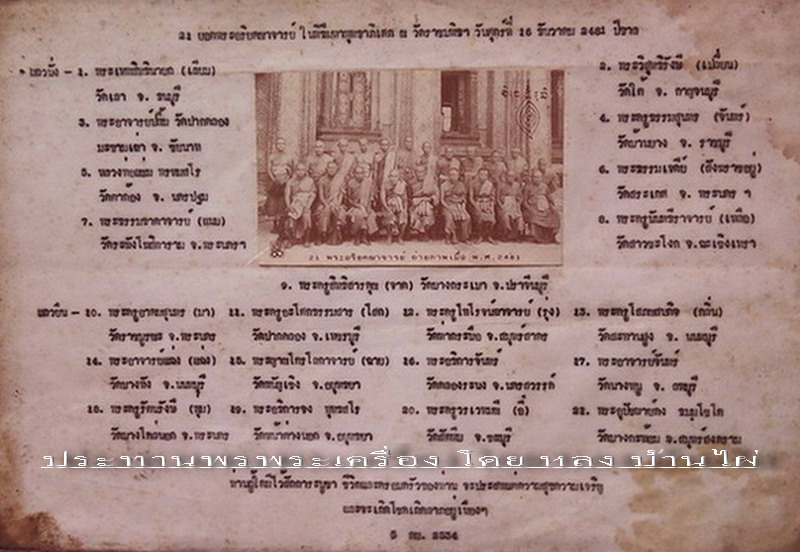 21 ยอดพระอริยคณาจารย์ ในพิธีมหาพุทธาภิเศค ณ วัดราชบพิธฯ วันศุกร์ที่ 16 ธันวาคม 2481 ปีขาล
แถวนั่ง - 1. พระเทพสิทธินายก (เลียบ) 2. พระวิสุทธิรังษี (เปลี่ยน)
วัดเลา จ. ธนบุรี วัดใต้ จ. กาญจนบุรี
3. พระอาจารย์ปลื้ม วัดปากคลอง 4. พระครูธรรมสุนทร (จันทร์)
มะขามเฒ่า จ. ชัยนาท วัดบ้านยาง จ. ราชบุรี
5. หลวงพ่อแช่ม 6. พระธรรมเจดีย์ (อยู่)
วัดตาก้อง จ. นครปฐม วัดสระเกศ จ. พระนคร ฯ
7. พระธรรมธาดาจารย์ (แนม) 8. (เหลือ)
วัดระฆังโฆสิตาราม จ.พระนครฯ วัดสาวชะโงก จ. ฉะเชิงเทรา
21 พระอริยคณาจารย์ ถ่ายภาพเมื่อ พ.ศ. 2481
9. พระครูสิทธิสารคุณ (จาด) วัดบางกระเบา จ. ปราจีนบุรี
แถวยืน - 10. พระครูอาคมสุนทร (มา) 11. พระครูอะโศกธรรมสาร (โศก) 12. พระครูไพโรจน์ (รุ่ง) 13. พระครูโสภณสาสกิจ (กลิ่น)
วัดราษฎร์บูรณะ จ.พระนคร วัดปากคลอง จ.เพชรบุรี วัดท่ากระบือ จ.สมุทรสาคร วัดสะพานสูง จ. นนทบุรี
14. พระอาจารย์แฉ่ง (แฉ่ง) 15. พระญาณไตรโลกาจารย์ (ฉาย) 16. พระอธิการจันทร์ 17. พระอาจารย์จันทร์
วัดบางพัง จ. นนทบุรี วัดพนัญเชิง จ.อยุธยา วัดคลองระนง จ.นครสวรรค์ วัดนางหนู จ. ลพบุรี
18. พระครูรัตนรังษี (พุ่ม) 19. พระอธิการจง พุทธสโร 20. พระครูวรเวทมุนี (อี๋) 21. พระอุปัชฌาย์คง ธมฺมโชโต
วัดบางโคล่นอก จ.พระนคร วัดหน้าต่างนอก จ.อยุธยา วัดสัตหีบ จ.ชลบุรี วัดบางกะพ้อม จ.สมุทรสงคราม
ประทานพรพระเครื่อง โดย หลง บ้านไผ่
ท่านผู้ใดมีไว้สักการะบูชา ชีวิตและครอบครัวของท่าน จะประสพแต่ความสุขความเจริญ
และจะเกิดโชคเกิดลาภอยู่เนืองๆ
5 กย. 2534